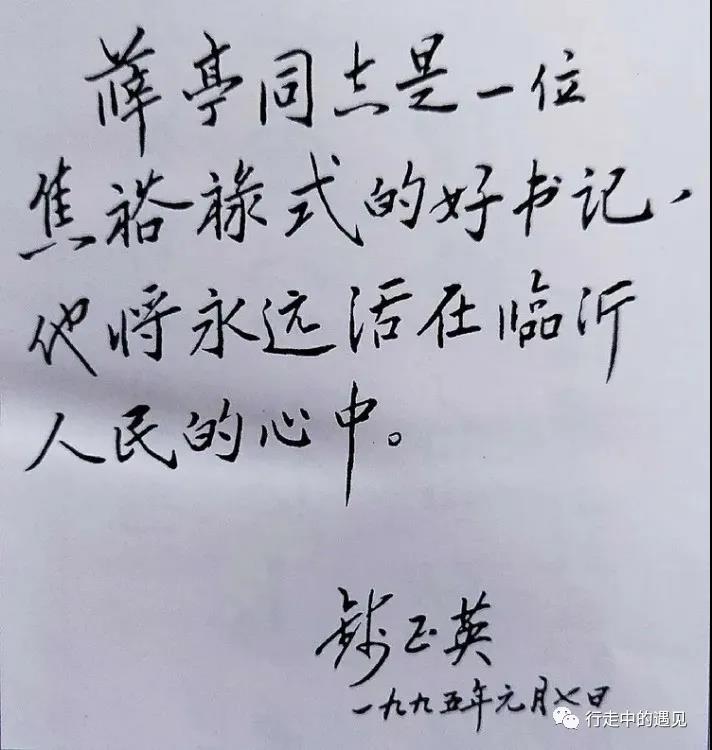 薛亭同志是一位
焦裕禄式的好书记、
他将永远活在临沂
人民的心中。
钱正英
一九九五年元月七日
行走中的遇见